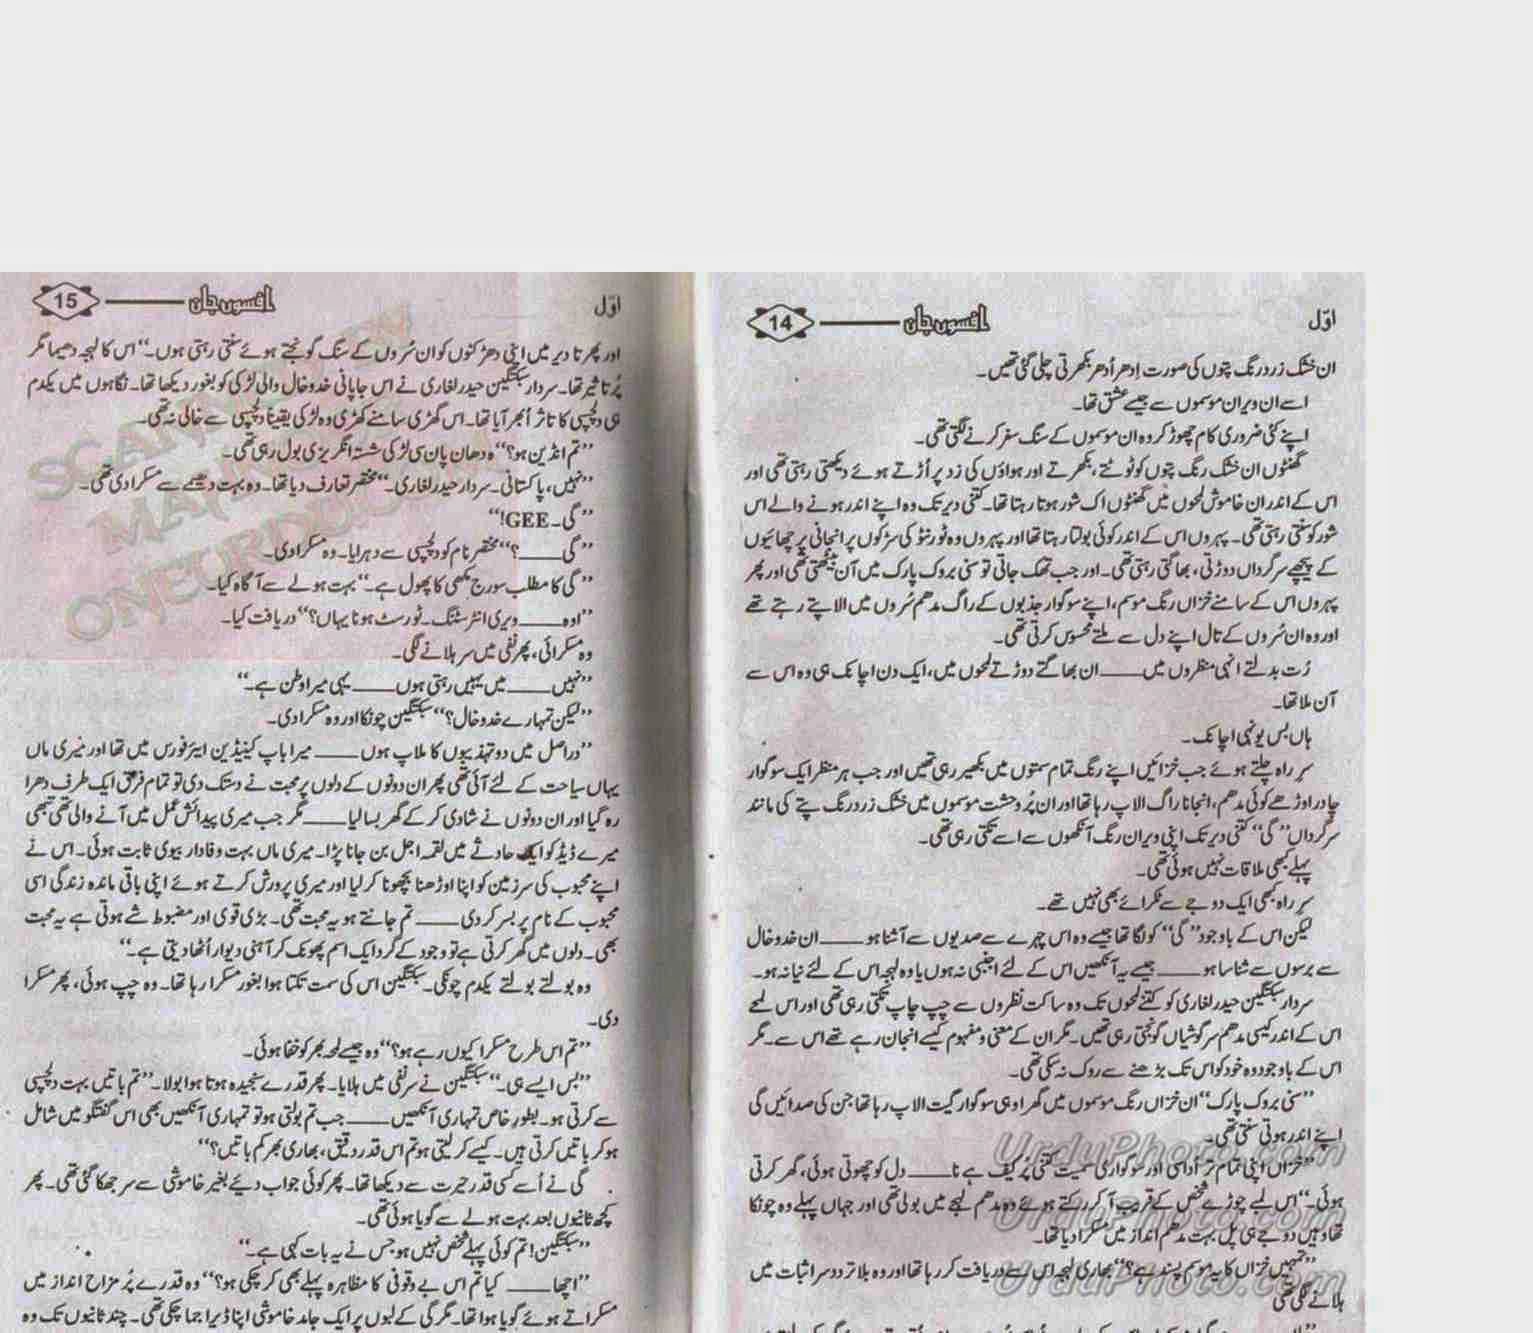 اوّل
افسوں جاں
14
ان خشک زرد رنگ پتوں کی صورت اِدھر اُدھر بکھرتی چلی گئی تھیں۔
اسے ان ویران موسموں سے جیسے عشق تھا۔
اپنے کئی ضروری کام چھوڑ کر وہ ان موسموں کے سنگ سفر کرنے لگتی تھی۔
گھنٹوں ان خشک رنگ پتوں کو ٹوٹتے، بکھرتے اور ہواؤں کی زد پر اُڑتے ہوئے دیکھتی رہتی تھی اور
اس کے اندر ان خاموش لمحوں میں گھنٹوں اک شور ہوتا رہتا تھا۔ کتنی دیر تک وہ اپنے اندر ہونے والے اس
شور کو سنتی رہتی تھی۔ پہروں اس کے اندر کوئی بولتا رہتا تھا اور پہروں وہ ٹورنٹو کی سڑکوں پر انجانی پرچھائیوں
کے پیچھے سرگرداں دوڑتی، بھاگتی رہتی تھی۔ اور جب تھک جاتی تو سنی بروک پارک میں آن بیٹھتی تھی اور پھر
پہروں اس کے سامنے خزاں رنگ موسم، اپنے سوگوار جذبوں کے راگ مدھم سُروں میں الاپتے رہتے تھے
اور وہ ان سُروں کے تال اپنے دل سے ملتے محسوس کرتی تھی۔
رُت بدلتے انہی منظروں میں ____ ان بھاگتے دوڑتے لمحوں میں، ایک دن اچانک ہی وہ اس سے
آن ملا تھا۔
ہاں بس یونہی اچانک۔
سرِ راہ چلتے ہوئے جب خزائیں اپنے رنگ تمام سمتوں میں بکھیر رہی تھیں اور جب ہر منظر ایک سوگوار
چادر اوڑھے کوئی مدھم، انجانا راگ الاپ رہا تھا اور ان پُر وحشت موسموں میں خشک زرد رنگ پتے کی مانند
سرگرداں ’’گی‘‘ کتنی دیر تک اپنی ویران رنگ آنکھوں سے اسے تکتی رہی تھی۔
پہلے کبھی ملاقات نہیں ہوئی تھی۔
سرِ راہ کبھی ایک دوجے سے ٹکرائے بھی نہیں تھے۔
لیکن اس کے باوجود ’’گی‘‘ کو لگا تھا جیسے وہ اس چہرے سے صدیوں سے آشنا ہو ____ ان خدوخال
سے برسوں سے شناسا ہو ____ جیسے یہ آنکھیں اس کے لئے اجنبی نہ ہوں یا وہ لہجہ اس کے لئے نیا نہ ہو۔
سردار سبکتگین حیدر لغاری کو کتنے لمحوں تک وہ ساکت نظروں سے چپ چاپ تکتی رہی تھی اور اس لمحے
اس کے اندر کیسی مدھم سرگوشیاں گونجتی رہی تھیں۔ مگر ان کے معنی و مفہوم کیسے انجان رہے تھے اس سے۔ مگر
اس کے باوجود وہ خود کو اس تک بڑھنے سے روک نہ سکی تھی۔
’’سنی بروک پارک‘‘ ان خزاں رنگ موسموں میں گھرا وہی سوگوار گیت الاپ رہا تھا جن کی صدائیں گی
اپنے اندر ہوتی سنتی تھی۔
’’خزاں اپنی تمام تر اُداسی اور سوگواری سمیت کتنی پُرکیف ہے نا ____ دل کو چھوتی ہوئی، گھر کرتی
ہوئی۔‘‘ اس لمبے چوڑے شخص کے قریب آ کر رکتے ہوئے وہ مدھم لہجے میں بولی تھی اور جہاں پہلے وہ چونکا
تھا وہیں دوجے ہی پل بہت مدھم انداز میں مسکرا دیا تھا۔
’’تمہیں خزاں کا یہ موسم پسند ہے؟‘‘ بھاری لہجہ اس سے دریافت کر رہا تھا اور وہ بلا تردد سر اثبات میں
ہلانے لگی تھی
UrduPhoto.com
UrduPhoto.com
UrduPhoto.com
اوّل
افسوں جاں
15
اور پھر تا دیر میں اپنی دھڑکنوں کو ان سُروں کے سنگ گونجتے ہوئے سنتی رہتی ہوں۔‘‘ اس کا لہجہ دھیما مگر
پُر تاثیر تھا۔ سردار سبکتگین حیدر لغاری نے اس جاپانی خدوخال والی لڑکی کو بغور دیکھا تھا۔ نگاہوں میں یکدم
ہی دلچسپی کا تاثر اُبھر آیا تھا۔ اس گھڑی سامنے کھڑی وہ لڑکی یقیناً دلچسپی سے خالی نہ تھی۔
’’تم انڈین ہو؟‘‘ وہ دھان پان سی لڑکی شستہ انگریزی بول رہی تھی۔
’’نہیں، پاکستانی۔ سردار حیدر لغاری۔‘‘ مختصر تعارف دیا تھا۔ وہ بہت دھیمے سے مسکرا دی تھی۔
’’گی۔ GEE!‘‘
’’گی ____؟‘‘ مختصر نام کو دلچسپی سے دہرایا۔ وہ مسکرا دی۔
’’گی کا مطلب سورج مکھی کا پھول ہے۔‘‘ بہت ہولے سے آگاہ کیا۔
’’اوہ ____ ویری انٹرسٹنگ۔ ٹورسٹ ہو نا یہاں؟‘‘ دریافت کیا۔
وہ مسکرائی، پھر نفی میں سر ہلانے لگی۔
’’نہیں ____ میں یہیں رہتی ہوں ____ یہی میرا وطن ہے۔‘‘
’’لیکن تمہارے خدوخال؟‘‘ سبکتگین چونکا اور وہ مسکرا دی۔
’’دراصل میں دو تہذیبوں کا ملاپ ہوں ____ میرا باپ کینیڈین ایئرفورس میں تھا اور میری ماں
یہاں سیاحت کے لئے آئی تھی پھر ان دونوں کے دلوں پر محبت نے دستک دی تو تمام فرق ایک طرف دھرا
رہ گیا اور ان دونوں نے شادی کر کے گھر بسا لیا ____ مگر جب میری پیدائش عمل میں آنے والی تھی تبھی
میرے ڈیڈ کو ایک حادثے میں لقمہ اجل بن جانا پڑا۔ میری ماں بہت وفادار بیوی ثابت ہوئی۔ اس نے
اپنے محبوب کی سرزمین کو اپنا اوڑھنا بچھونا کر لیا اور میری پرورش کرتے ہوئے اپنی باقی ماندہ زندگی اسی
محبوب کے نام پر بسر کر دی ____ تم جانتے ہو یہ محبت تھی۔ بڑی قوی اور مضبوط شے ہوتی ہے یہ محبت
بھی۔ دلوں میں گھر کرتی ہے تو وجود کے گرد ایک اسم پھونک کر آہنی دیوار اُٹھا دیتی ہے۔‘‘
وہ بولتے بولتے یکدم چونکی۔ سبکتگین اس کی سمت تکتا ہوا بغور مسکرا رہا تھا۔ وہ چپ ہوئی، پھر مسکرا
دی۔
’’تم اس طرح مسکرا کیوں رہے ہو؟‘‘ وہ جیسے لمحہ بھر کو خفا ہوئی۔
’’بس ایسے ہی۔‘‘ سبکتگین نے سر نفی میں ہلایا۔ پھر قدرے سنجیدہ ہوتا ہوا بولا۔ ’’تم باتیں بہت دلچسپی
سے کرتی ہو۔ بطورِ خاص تمہاری آنکھیں ____ جب تم بولتی ہو تو تمہاری آنکھیں بھی اس گفتگو میں شامل
ہو کر باتیں کرتی ہیں۔ کیسے کر لیتی ہو تم اس قدر دقیق، بھاری بھر کم باتیں؟‘‘
گی نے اُسے کسی قدر حیرت سے دیکھا تھا۔ پھر کوئی جواب دیئے بغیر خاموشی سے سر جھکا گئی تھی۔ پھر
کچھ ثانیوں بعد بہت ہولے سے گویا ہوئی تھی۔
’’سبکتگین! تم کوئی پہلے شخص نہیں ہو جس نے یہ بات کہی ہے۔‘‘
’’اچھا ____ کیا تم اس بے وقوفی کا مظاہرہ پہلے بھی کر چکی ہو؟‘‘ وہ قدرے پُر مزاح انداز میں
مسکراتے ہوئے گویا ہوا تھا۔ مگر گی کے لبوں پر ایک جامد خاموشی اپنا ڈیرا جما چکی تھی۔ چند ثانیوں تک وہ